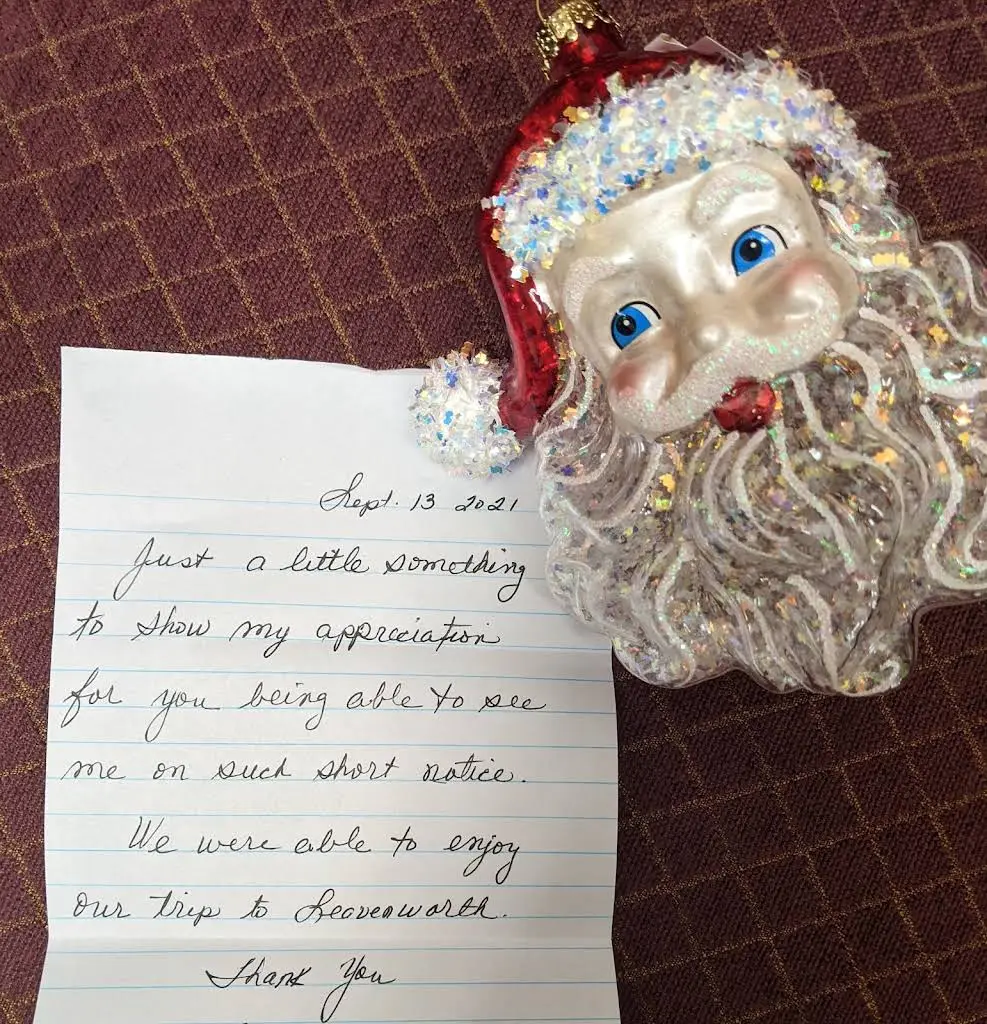 Sept. 13 2021
Just a little something
to show my appreciation
for you being able to see
me on such short notice.
We were able to enjoy
our trip to Leavenworth.
Thank You